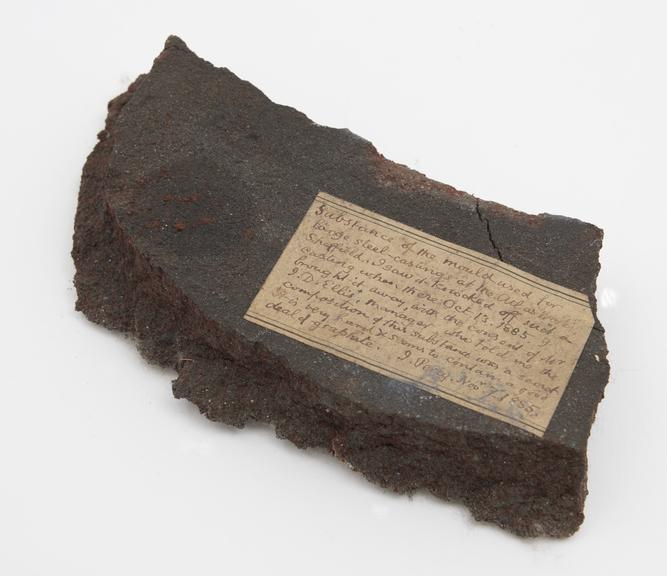 Substance of the mould used for
large steel castings at the Cyclops Works
Sheffield. I saw it knocked off such a
casting when there Oct. 13. 1885
brought it away, with the consent of Mr
J. D. Ellis, manager, who told me the
composition of this substance was a secret
It is very hard & seems to contain a good
deal of graphite. J. P. Nov. 7. 1885.